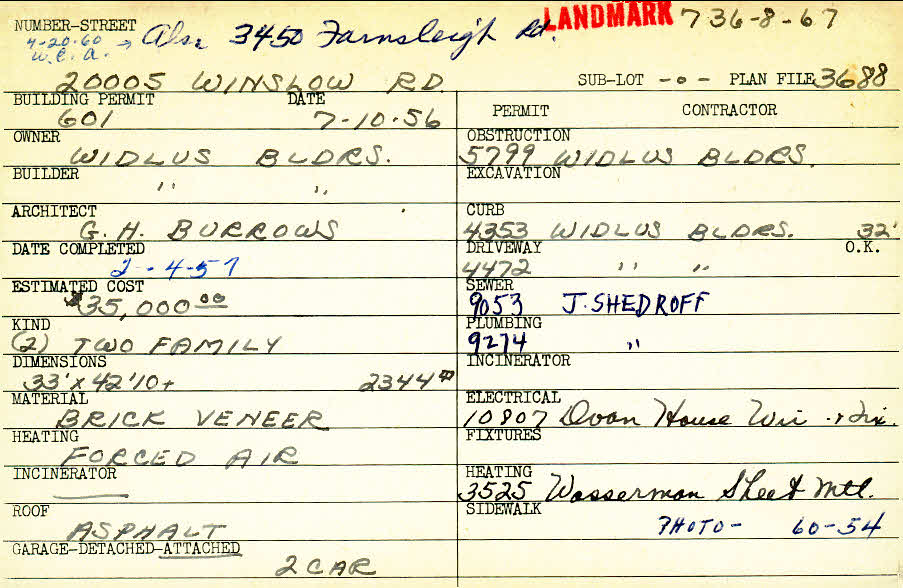 NUMBER-STREET
4-20-60 → Also 3450 Farnsleigh Rd.
W.C.A.
LANDMARK 736-8-67
20005 WINSLOW RD
SUB-LOT -0- PLAN FILE 3688
BUILDING PERMIT DATE
601 7-10-56
PERMIT CONTRACTOR
OWNER
WIDLUS BLDRS.
OBSTRUCTION
5799 WIDLUS BLDRS.
BUILDER
" "
EXCAVATION
ARCHITECT
G. H. BURROWS
CURB
4353 WIDLUS BLDRS. 32'
DATE COMPLETED
2-4-57
DRIVEWAY O.K.
4472 " "
ESTIMATED COST
$35,000.00
SEWER
9053 J. SHEDROFF
KIND
(2) TWO FAMILY
PLUMBING
9274 "
DIMENSIONS
33' x 42'10+ 2344 #
INCINERATOR
MATERIAL
BRICK VENEER
ELECTRICAL
10807 House Wir + Fix.
HEATING
FORCED AIR
FIXTURES
INCINERATOR
HEATING
3525 Wasserman Sheet Mtl.
ROOF
ASPHALT
SIDEWALK
PHOTO- 60-54
GARAGE-DETACHED-ATTACHED
2 CAR